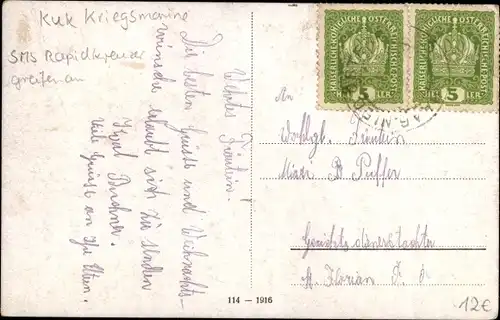 KuK Kriegsmarine
SMS Rapidkreuzer
greifen an
Wertes Fräulein.
Die besten Grüße und Weihnachts-
wünsche erlaubt sich zu senden
Karl
Viele Grüße an Ihre Eltern.
KAISERLICHE KÖNIGLICHE ÖSTERREICHISCHE POST
5 HELLER
KAISERLICHE KÖNIGLICHE ÖSTERREICHISCHE POST
5 HELLER
An
Wohlgb. Fräulein
B Puffer
Gerichtsdienerstochter
St. Florian
114 – 1916
12€